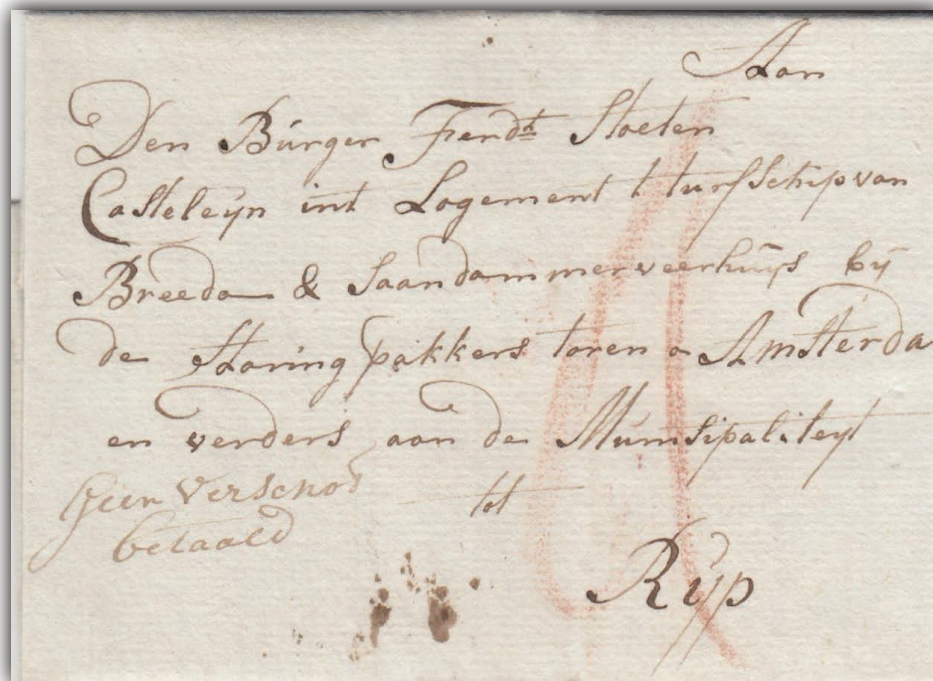 Aan
Den Bürger Ferdt Stoeten
Casteleÿn int Logement t turfschip van
Breeda & Saandammerveerhuÿs bÿ
de Haring pakkers toren a Amsterda
en verders aan de Munisipaliteyt
Geen Verschot
tot
betaald
Rÿp